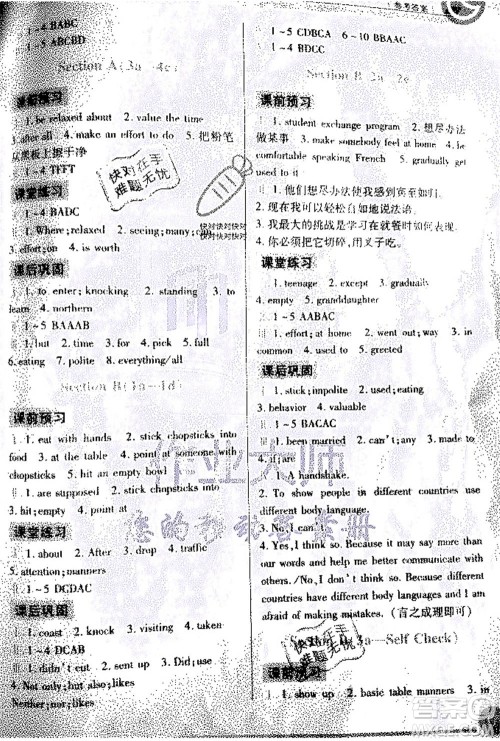 1~4 BABC
1~5 ABCBD
Section A(3a—4c)
课前预习
1. be relaxed about 2. value the time
3. after all 4. make an effort to do 5. 把粉笔
从黑板上擦干净
1~4 TFFT
课堂练习
1~4 BADC
1. Where; relaxed 2. seeing; many; can
3. effort; on 4. is worth
课后巩固
1. to enter; knocking 2. standing 3. to
learn 4. northern
1~5 BAAAB
1. but 2. time 3. for 4. pick 5. full
6. eating 7. polite 8. everything/all
Section B(1a—1d)
课前预习
1. eat with hands 2. stick chopsticks into
food 3. at the table 4. point at someone with
chopsticks 5. hit an empty bowl
1. are supposed 2. stick chopsticks into
3. hit; empty 4. point at
课堂练习
1. about 2. After 3. drop 4. traffic
5. attention; manners
1~5 DCDAC
课后巩固
1. coast 2. knock 3. visiting 4. taken
1~4 DCAB
1. didn't cut 2. sent up 3. Did; use
4. Not only; but also; likes 5.
Neither; nor; likes
参考答案
1~5 CDBCA 6~10 BBAAC
1~4 BDCC
Section B(2a—2e)
课前预习
1. student exchange program 2. 想尽办法
做某事 3. make somebody feel at home 4. be
comfortable speaking French 5. gradually get
used to it
1. 他们想尽办法使我感到宾至如归。
2. 现在我可以轻松自如地说法语。
3. 我最大的挑战是学习在就餐时如何表现。
4. 你必须把它切碎，用叉子吃。
课堂练习
1. teenage 2. except 3. gradually
4. empty 5. granddaughter
1~5 AABAC
1. effort; at home 2. went; without
3. been; comfortable 4. get; used
课后巩固
1. stick; impolite 2. used; eating
3. behavior 4. valuable
1~5 BACAC
1. been married 2. can't; any more 3.
it; are
1. A handshake.
2. To show people in different countries use
different body language.
3. No, I can't.
4. Yes, I think so. Because it may say more than
our words and help me better communicate with
others. /No, I don't think so. Because different
countries have different body languages and I am
afraid of making mistakes. (言之成理即可)
Section B(3a—Self Check)
课前预习
1. show up 2. basic table manners 3. in
快对在手
难题无忧
快对快对快对快对
快对快对快对快对
作业大师
快对在手
难题无忧